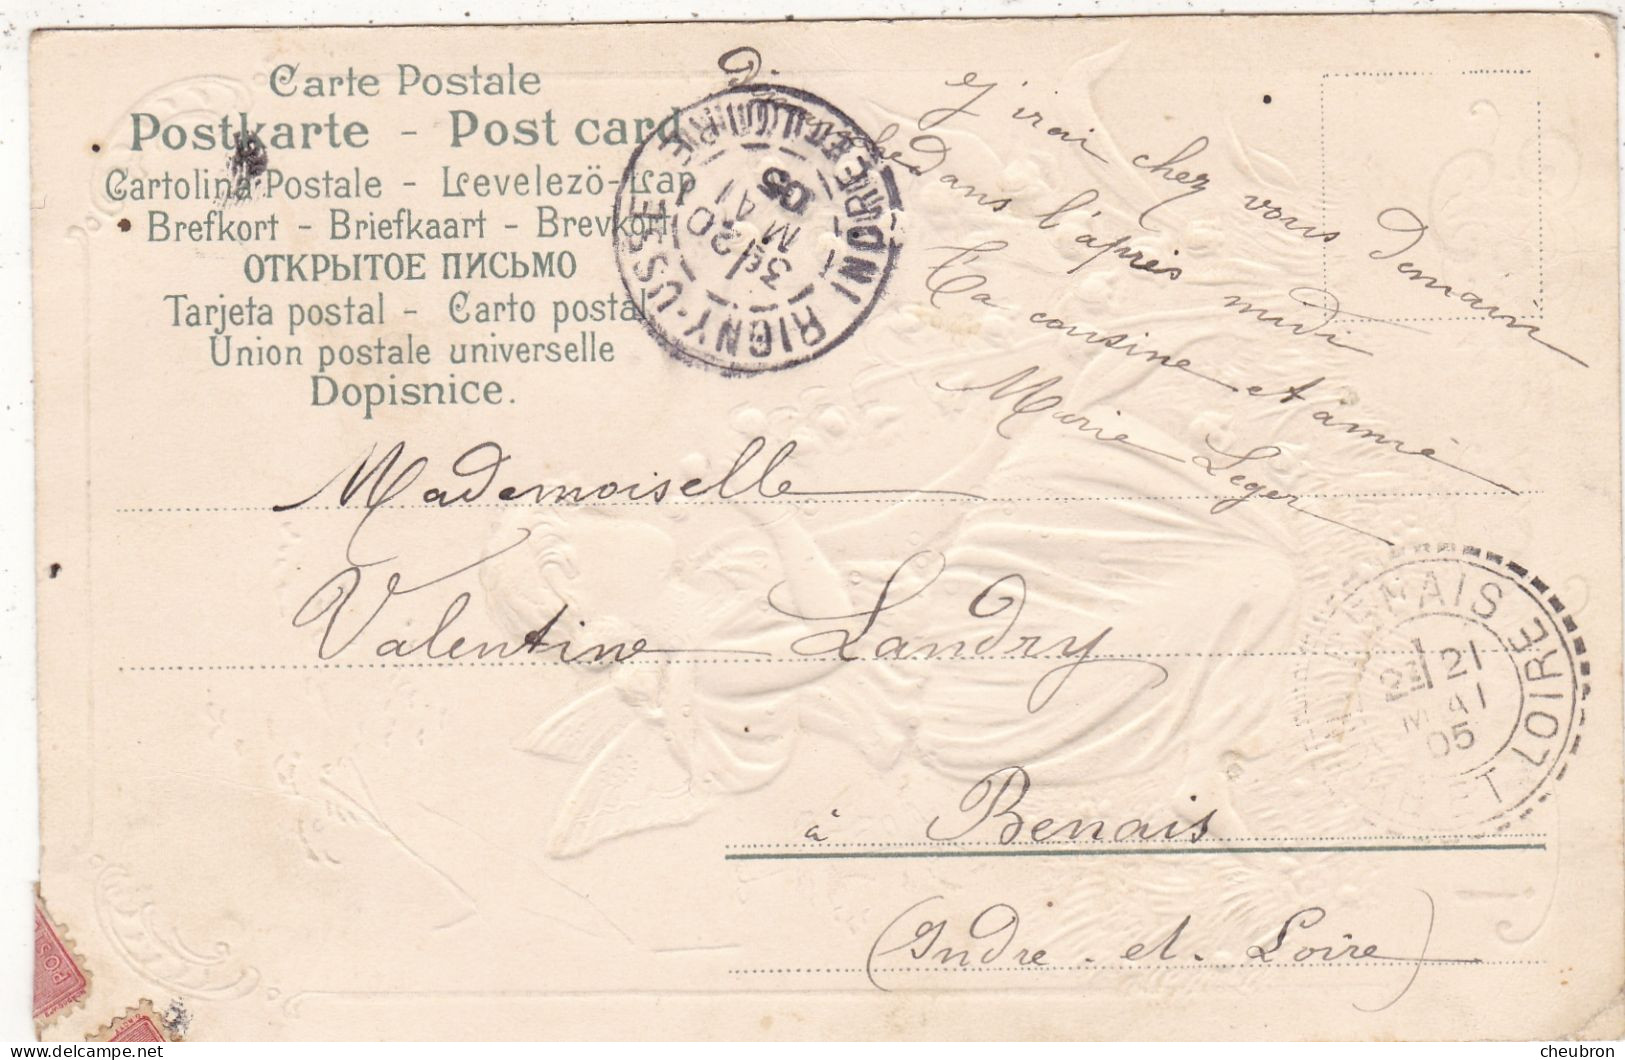 Carte Postale
Postkarte - Post card
Cartolina Postale - Levelezö-Lap
Brefkort - Briefkaart - Brevkort
ОТКРЫТОЕ ПИСЬМО
Tarjeta postal - Carto postal
Union postale universelle
Dopisnice.
RIGNY-USSÉ
INDRE-ET-LOIRE
3E 20
MAI
05
Dimanche
J'irai chez vous Demain
Dans l'après midi
Ta cousine et amie
Marie Leger
Mademoiselle
Valentine Landry
à Benais
(Indre-et-Loire)
BENAIS
21
MAI
05
INDRE ET LOIRE
cheubron @ delcampe.net